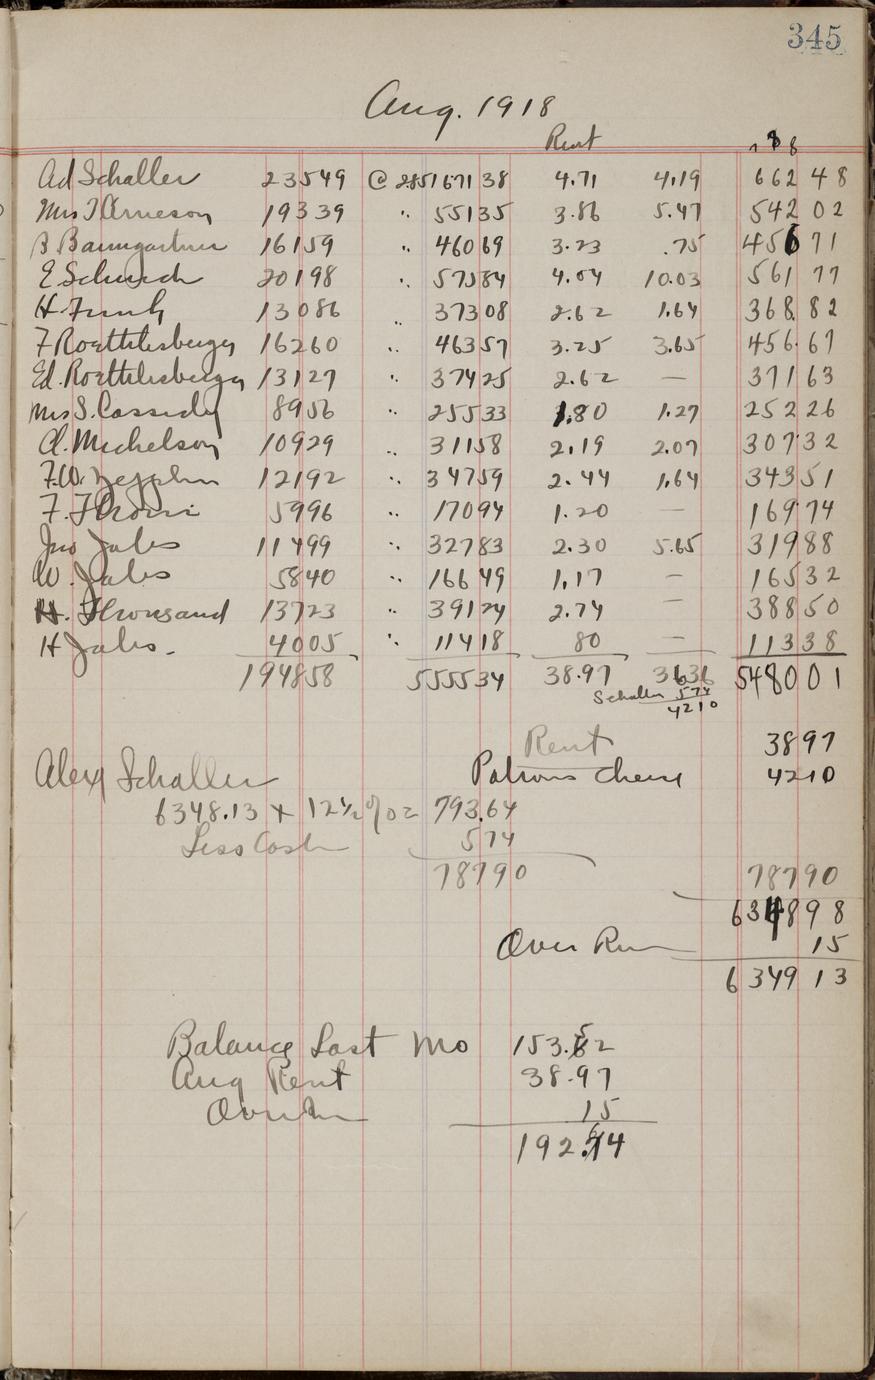 345
Aug. 1918
Rent
Ad Schaller 23549 @ 285 1/6 671 38 4.71 4.19 662 48
Mrs T Arneson 19339 " 551 35 3.86 5.47 542 02
B Baumgartner 16159 " 460 69 3.23 .75 456 71
E Schuch 20198 " 575 84 4.04 10.03 561 77
H. Funk 13086 " 373 08 2.62 1.64 368 82
F Roethlisberger 16260 " 463 57 3.25 3.65 456 67
Ed. Roethlisberger 13127 " 374 25 2.62 — 371 63
Mrs S. Cassidy 8956 " 255 33 1.80 1.27 252 26
A. Michelson 10929 " 311 58 2.19 2.07 307 32
F.W. Zepplin 12192 " 347 59 2.44 1.64 343 51
F. 5996 " 170 94 1.20 — 169 74
Jno Jales 11499 " 327 83 2.30 5.65 319 88
W. Jales 5840 " 166 49 1.17 — 165 32
H. Thronsand 13723 " 391 24 2.74 — 388 50
H Jales. 4005 " 114 18 80 — 113 38
194858 5555 34 38.97 36 36 5480 01
Schaller 5 74
42 10
Rent 38 97
Alex Schaller Patrons Cheese 42 10
6348.13 + 12 1/2 % = 793.64
Less Cash 5 74
787 90 787 90
6348 98
Over Run 15
6349 13
Balance Last Mo 153.52
Aug Rent 38.97
Over Run 15
192.64